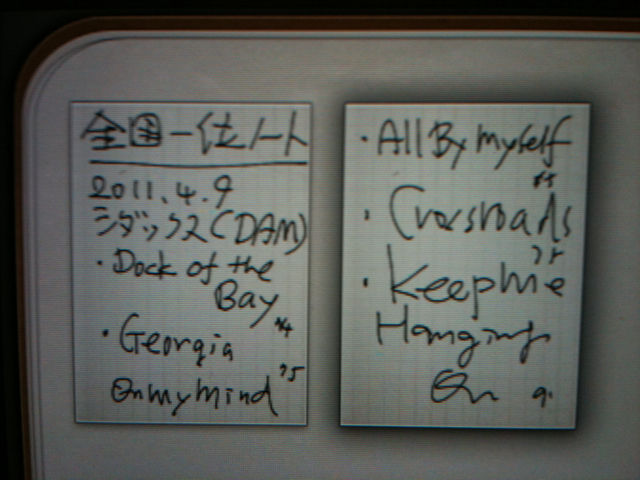 全国一位ノート
2011.4.9
シダックス(DAM)
・Dock of the
Bay
・Georgia
On my mind 75
・All By myself
・Crossroads
・Keep me
Hanging
On